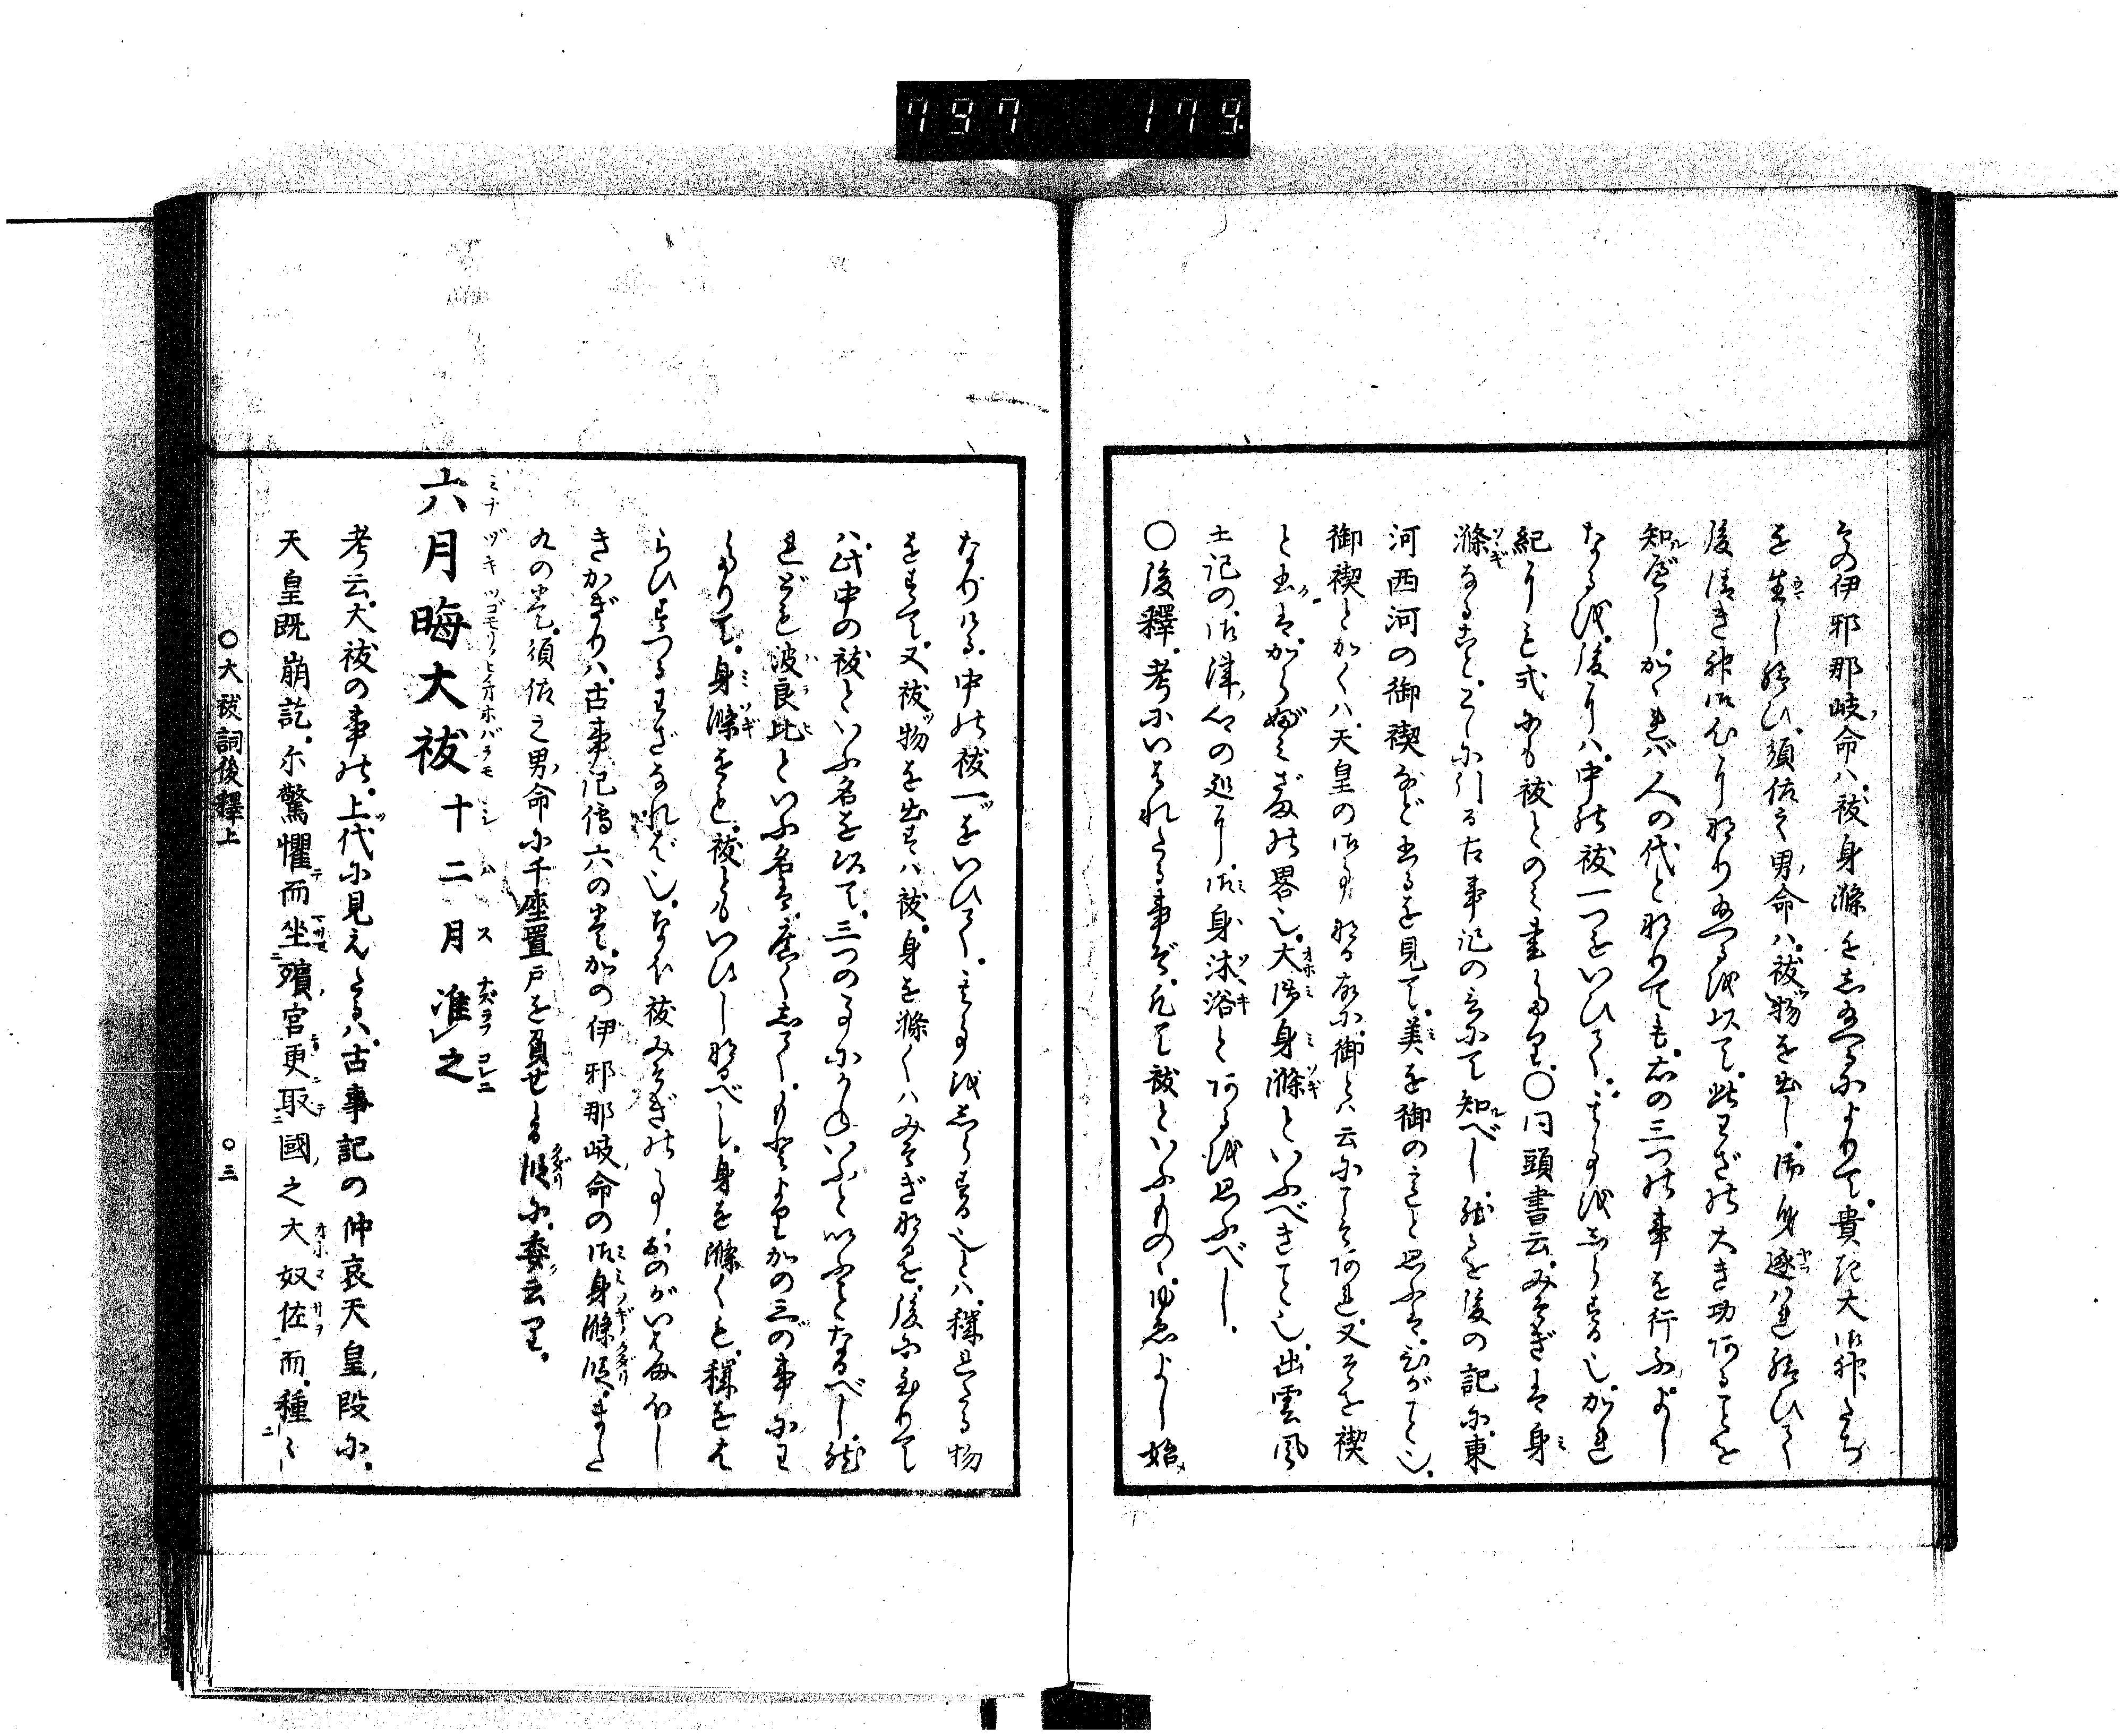 797 179
その伊邪那岐命ハ、祓身滌をし玉へるによりて、貴き大御神たち
を生し給ひ、須佐之男命ハ、祓物を出し、御身逐ハれ給ひて
後清き御心になり玉へるを以て、此わざの大き功あることを
知べし、かゝれバ人の代となりても、右の三つの事を行ふ、よし
なるを、後にハ、中の祓一つをいひて、こと事をしらする也、かれ
紀にも式にも祓とのミ書たり、〇同頭書云、みそぎは身
滌なること、こゝに引る古事記の言にて知べし、然るを後の記に、東
河西河の御禊など書るを見て、美を御の意と思ふは、ひがこと也、
御禊とかくハ、天皇の御事なる故に、御とハ云にこそあれ、又そを禊
と書は、からぶミざまの畧也、大御身滌といふべきこと也、出雲風
土記の、御津、
の処に、御身沐浴とあるを思ふべし、
〇後釋、考にいはれたる事ぞ、凡て祓といふものゝ、ゆゑよし始
なりける、中の祓一をいひて、こと事をしらする也とハ、穢たる物
をすて、又祓物を出すハ祓、身を滌くハみそぎなるを、後に至りて
ハ、此中の祓といふ名を以て、三つの事にかねいふといふことなるべし、然
れども波良比といふ名は、廣くして、もとより、かの三の事にわ
たりて、身滌をも、祓ともいひしなるべし、身を滌くも、穢をは
らひすつるわざなればなり、なほ祓みそぎの事、おのがいはまほし
きかぎりハ、古事記傳六の巻、かの伊邪那岐命の御身滌段、また
九の巻、須佐之男命に千座置戸を負せる段に、委云り、
六月晦大祓 十二月准之
考云、大祓の事の、上代に見えたるハ、古事記の仲哀天皇段に、
天皇既崩訖、尓驚懼而坐殯宮更取國之大奴佐而、種々
〇大祓詞後釋上 〇三